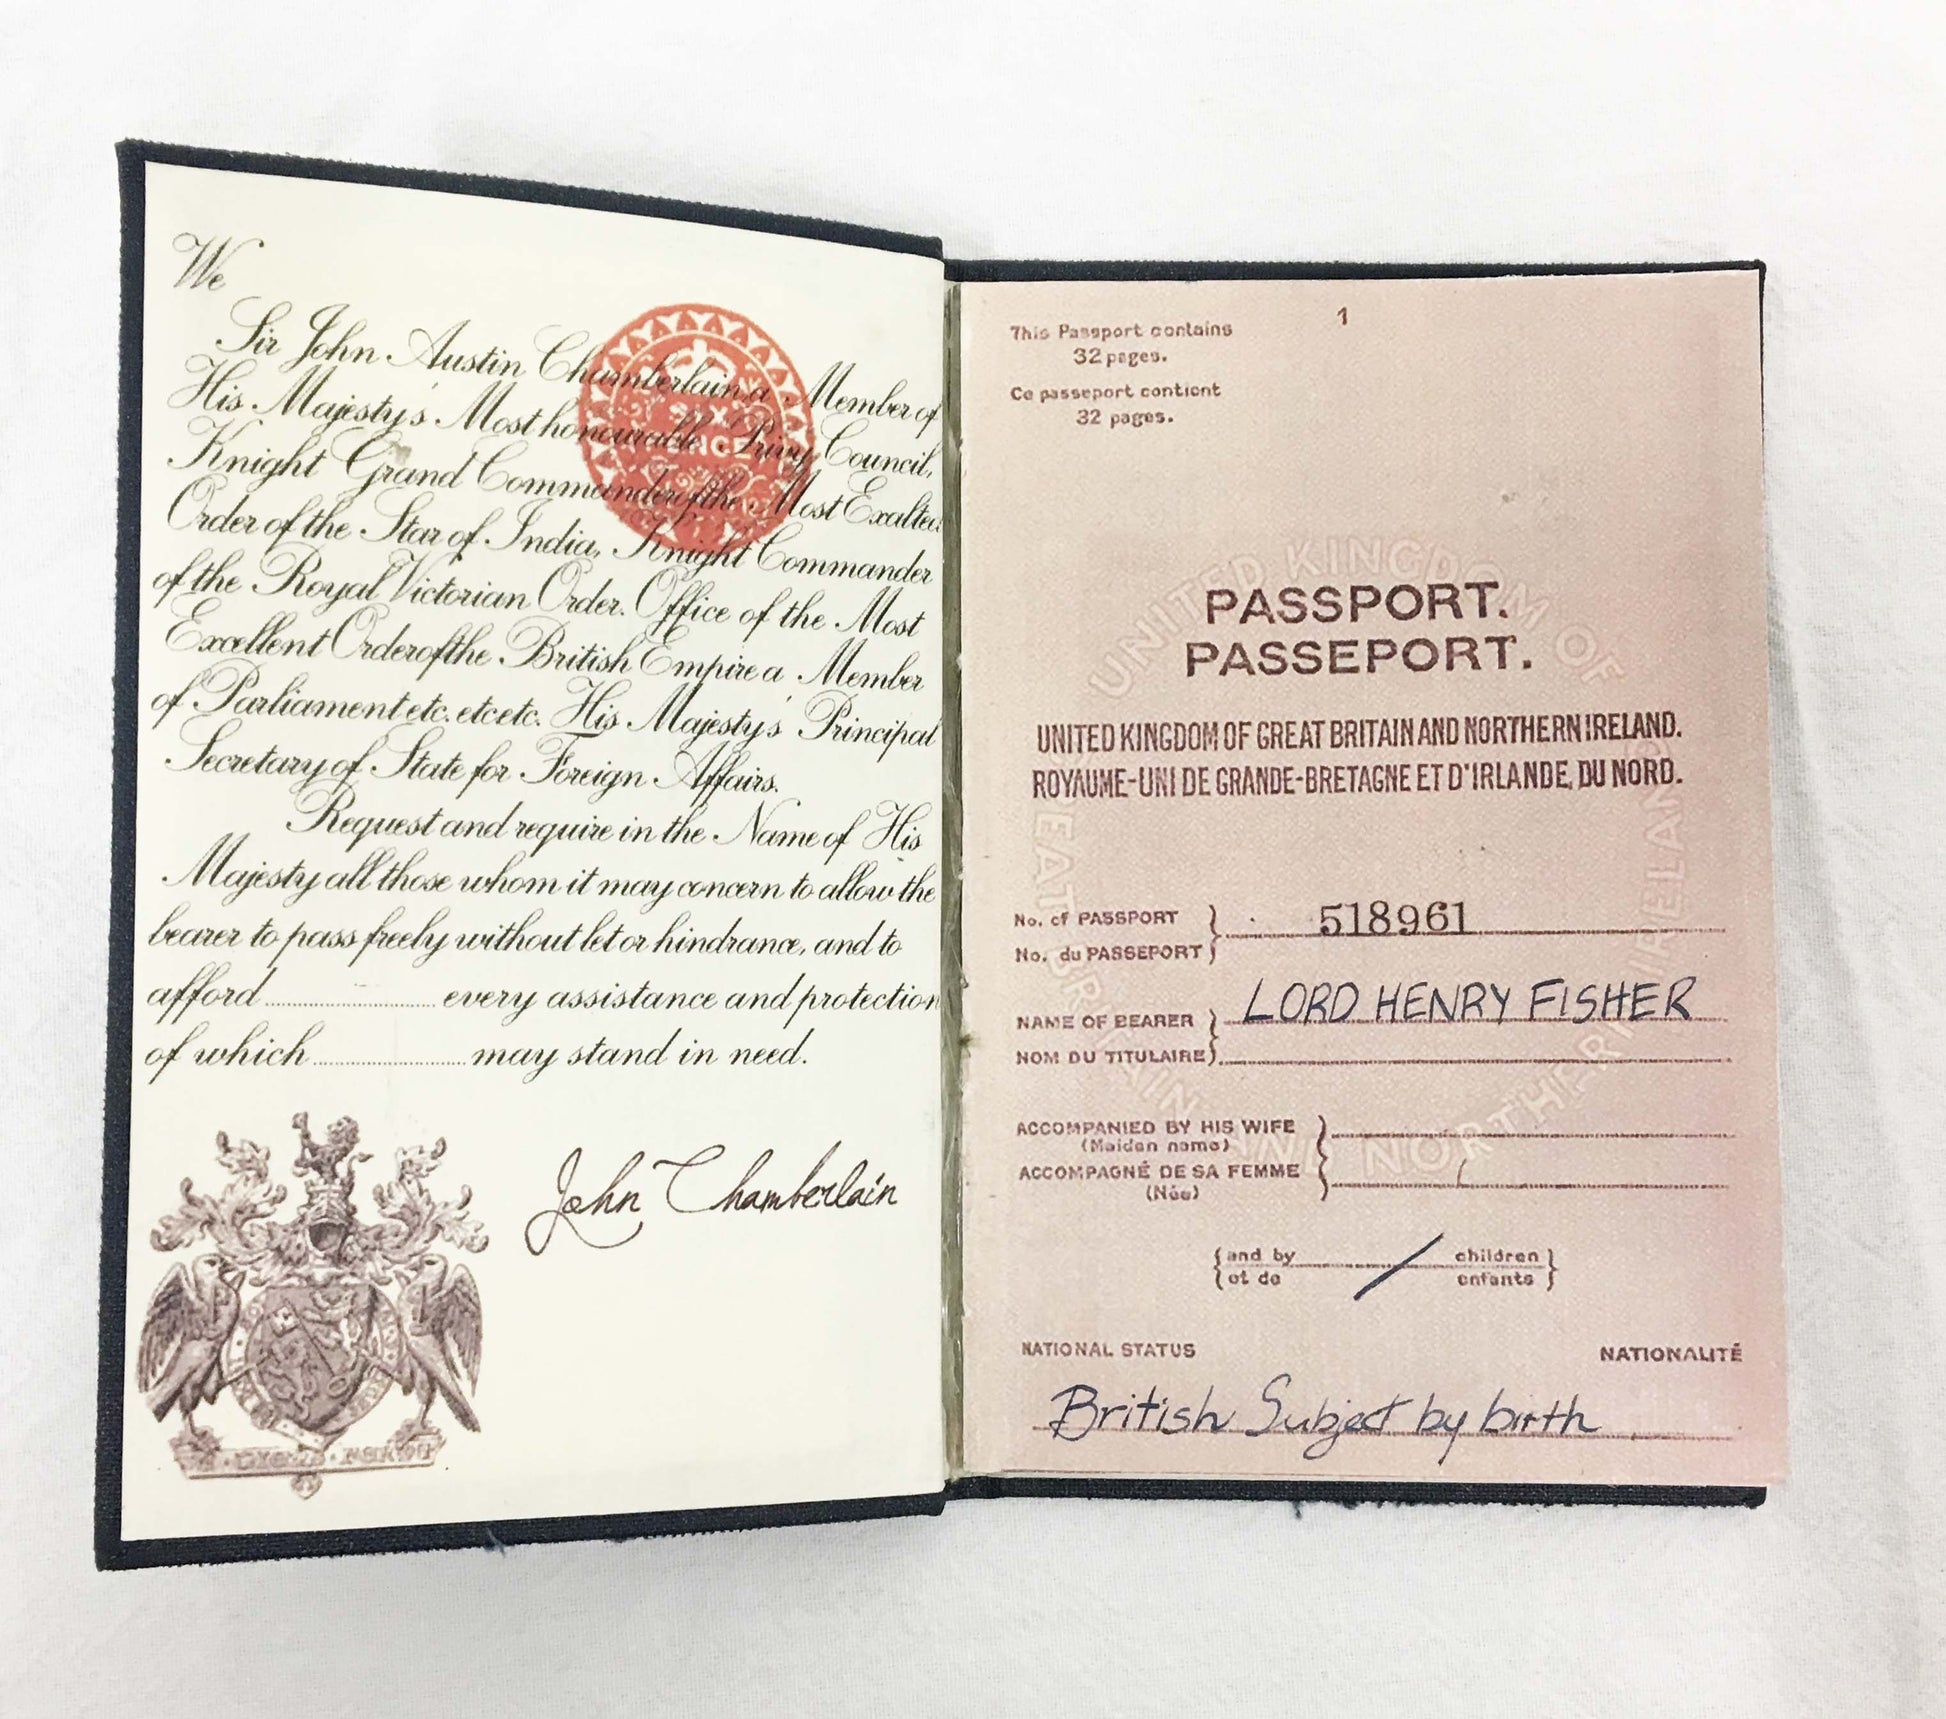 We
Sir John Austin Chamberlain a Member of
His Majesty's Most honourable Privy Council,
Knight Grand Commander of the Most Exalted
Order of the Star of India, Knight Commander
of the Royal Victorian Order. Office of the Most
Excellent Order of the British Empire a Member
of Parliament etc. etc etc. His Majesty's Principal
Secretary of State for Foreign Affairs.
Request and require in the Name of His
Majesty all those whom it may concern to allow the
bearer to pass freely without let or hindrance, and to
afford .................... every assistance and protection
of which .................... may stand in need.
John Chamberlain
1
This Passport contains
32 pages.
Ce passeport contient
32 pages.
PASSPORT.
PASSEPORT.
UNITED KINGDOM OF GREAT BRITAIN AND NORTHERN IRELAND.
ROYAUME-UNI DE GRANDE-BRETAGNE ET D'IRLANDE, DU NORD.
No. of PASSPORT
518961
No. du PASSEPORT
LORD HENRY FISHER
NAME OF BEARER
NOM DU TITULAIRE
ACCOMPANIED BY HIS WIFE
(Maiden name)
ACCOMPAGNÉ DE SA FEMME
(Née)
and by / children
et de enfants
NATIONAL STATUS NATIONALITÉ
British Subject by birth
UNITED KINGDOM OF GREAT BRITAIN AND NORTHERN IRELAND